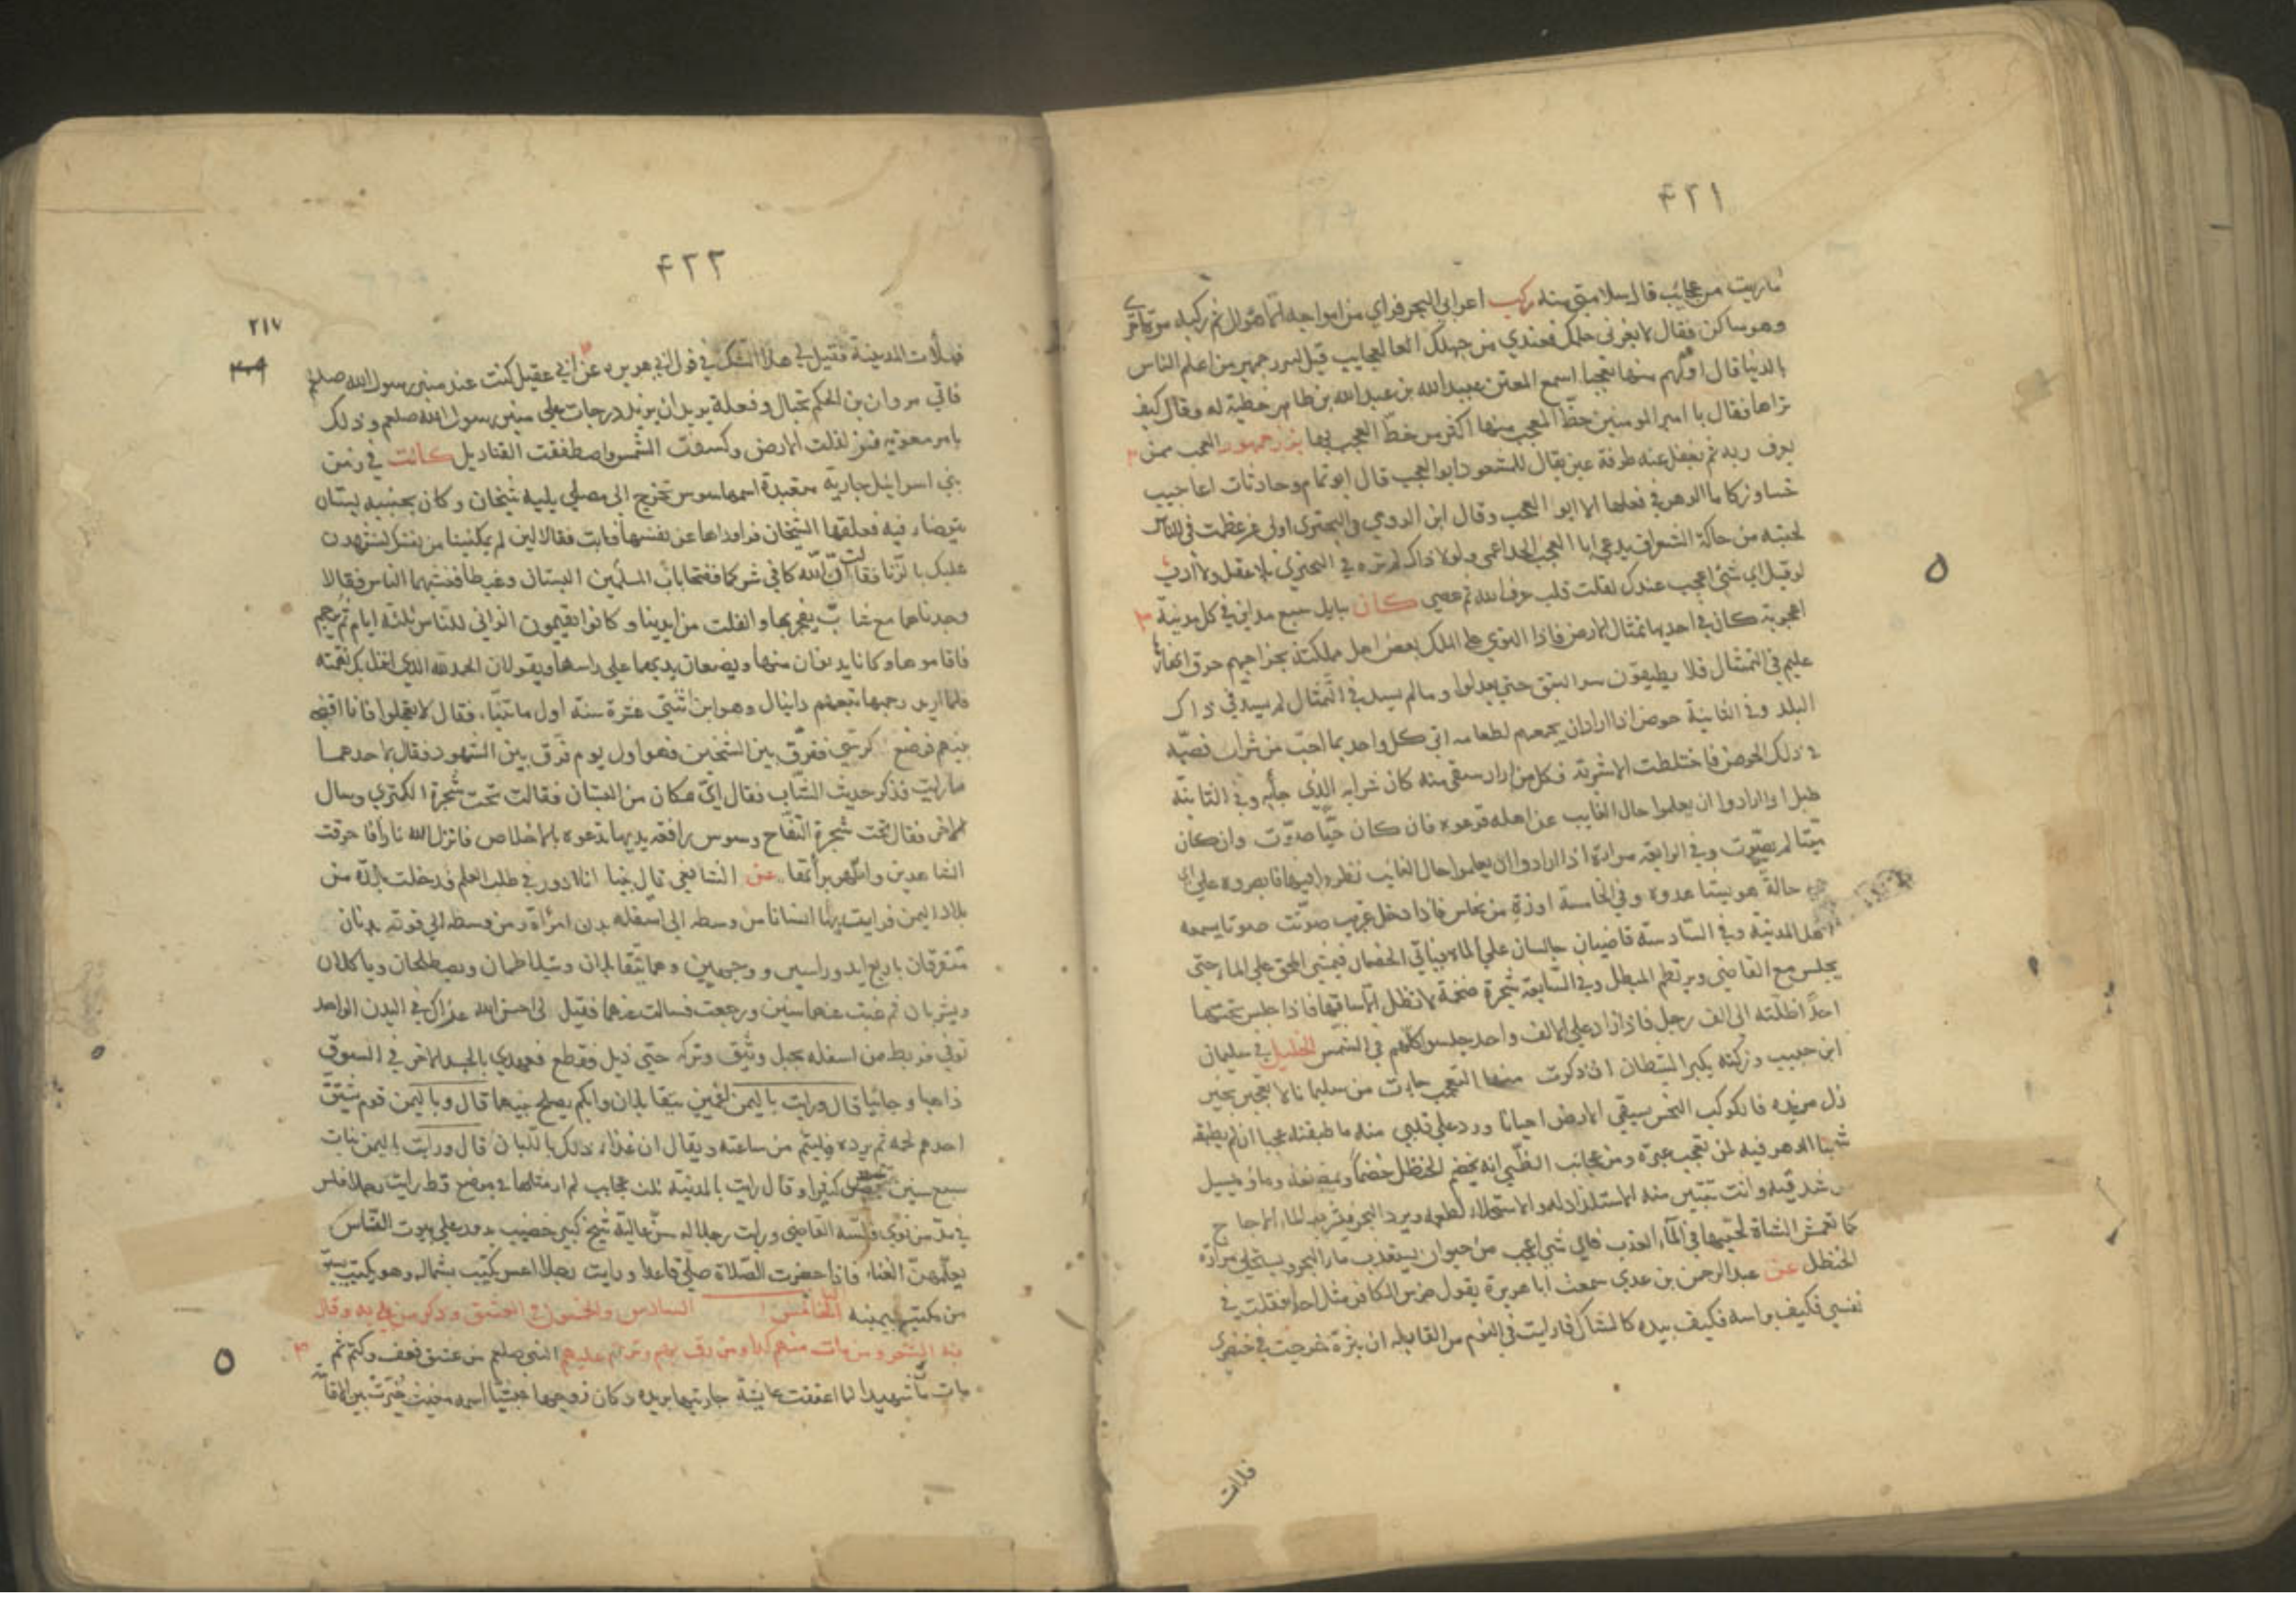 ۴۲۱
ما رايت من عجايب قال سلامتي منه ركب اعرابي البحر فراي من امواجه لما هوال ثم ركبه مرة اخرى
وهو ساكن فقال لا يغرني حلمك فعندي من جهلك العجايب قيل لبزرجمهر من اعلم الناس
بالدنيا قال اقلهم منها تعجبا اسمع المعتز عبيد الله بن عبد الله بن طاهر خطبة له وقال كيف
تراها فقال يا امير المومنين حظ المعجب منها اكثر من حظ العجب بها بزرجمهور العجب ممن
يعرف ربه ثم يغفل عنه طرفة عين يقال للمشعوذ ابو العجب قال ابو تمام وحادثات اعاجيب
خسا وزكا ما الدهر في فعلها الا ابو العجب وقال ابن الرومي في البحتري اولى من عظمت في الناس
لحيته من حاكة الشعر ان يدعى ابا العجب الجد اعمى ولولا ذاك لم تره في البحتري بلا عقل ولا ادب
لو قيل اي شئ اعجب عندك لقلت قلب عرف الله ثم عصي كان ببابل سبع مداين في كل مدينة
اعجوبة كان في احديها تمثال الارض فاذا التوي على الملك بعض اهل مملكته بخراجهم خرق انهارها
عليهم في التمثال فلا يطيقون سد البثق حتى يعدلوا وما لم يسد في التمثال لم يسد في ذاك
البلد وفي الثانية حوض اذا اراد ان يجمعهم لطعامه اتي كل واحد بما احب من شراب فصبه
في ذلك الحوض فاختلطت الاشربة فكل من اراد سقي منه كان شرابه الذي جا به وفي الثالثة
طبل اذا ارادوا ان يعلموا حال الغايب عن اهله قرعوه فان كان حيا صوت وان كان
ميتا لم يصوت وفي الرابعة مراة اذا ارادوا ان يعلموا حال الغايب نظروا فيها فابصروه علي اي
حالة هو بيننا عدوه وفي الخامسة اوزة من نحاس فاذا دخل غريب صوتت صوتا يسمعه
اهل المدينة وفي السادسة قاضيان جالسان علي الماء فياتي الخصمان فيمشي المحق علي الماء حتى
يجلس مع القاضي ويرتطم المبطل وفي السابعة شجرة ضخمة لا تظل الا ساقها فاذا جلس تحتها
احد اظلته الى الف رجل فاذا زاد علي الالف واحد جلسوا كلهم في الشمس الخليل في سليمان
ابن حبيب وزلة يكثر الشيطان ان ذكرت منها التعجب جات من سليمانا لا تعجبن بخير
زل من يده فالكوكب النحس يسقي الارض احيانا ورد علي قلبي منه ما طبقته عجبا ان لم يطبقه
شيبا الدهر فيه لمن تعجب عبرة ومن عجائب الظبي انه يخضم الحنظل خضما ويمضغه وماؤه يسيل
من شدقيه وانت تتبين منه الاستلذاذ له والاستحلاء لطعمه ويرد البحر فيشرب الماء الاجاج
كما تغمس الشاة لحيتها في الماء العذب فاي شي اعجب من حيوان يستعذب ماء البحر ويستحلي مرارة
الحنظل عن عبد الرحمن بن عدي سمعت ابا هريرة يقول ضرس الكافر مثل احد فقلت في
نفسي فكيف براسه فكيف بيده كالشاك فاريت في النوم من القابله ان بثرة خرجت في خنصري
فلات
۴۲۲
۲۱۷
فملأت المدينة فقيل لي هذا الشك في قول ابي هريره عن ابي عقيل كنت عند منبر رسول الله صلعم
فاتي مروان بن الحكم بحبال وفعلة يريد ان يزيد درجات علي منبر رسول الله صلعم وذلك
بامر معوية فتزلزلت الارض وكسفت الشمس واصطفقت القناديل كانت في زمن
بني اسرائيل جارية متعبدة اسمها سوس تخرج الى مصلي يليه شيخان وكان بجنبه بستان
يتوضا فيه فعلقها الشيخان فراوداها عن نفسها فابت فقالا لين لم تمكنينا من نفسك لنشهدن
عليك بالزنا فقالت ان الله كافي شركما ففتحا باب البستان وغيطا فغشيهما الناس فقالا
وجدناها مع شاب يفجر بها وانفلت من ايدينا وكانوا يقيمون الزاني للناس ثلثة ايام ثم يرجم
فاقاموها وكانا يدنوان منها ويضعان يديهما على راسها ويقولان الحمد لله الذي انزل بك نقمته
فلما اريد رجمها تبعهم دانيال وهو ابن اثنتي عشرة سنة اول ما تنبا فقال لا تعجلوا فانا اقضي
بينهم فوضع كرسي ففرق بين الشيخين فهو اول يوم فرق بين الشهود فقال لاحدهما
ما رايت فذكر حديث الشاب فقال اي مكان من البستان فقالت تحت شجرة الكمثري وسال
الاخر فقال تحت شجرة التفاح وسوس رافعة يديها تدعوه بالاخلاص فانزل الله نارا فاحرقت
الشاهدين واظهر براتها عن الشافعي قال بينا انا ادور في طلب العلم فدخلت بلدة من
بلاد اليمن فرايت بها انسانا من وسطه الى اسفله بدن امرأة ومن وسطه الى فوقه بدنان
متفرقان باربع ايد وراسين ووجهين وهما يتقابلان ويتلاطمان ويصطلحان وياكلان
ويشربان ثم غبت عنهما سنين ورجعت فسالت عنهما فقيل لي احسن الله عزاك في البدن الواحد
توفي فربط من اسفله بحبل وثيق وترك حتى ذبل فقطع فعهدي بالجسد الاخر في السوق
ذاهبا وجائيا قال ورايت باليمن اعميين يتقابلان وابكم يصلح بينهما قال وباليمن قوم يشق
احدهم لحمه ثم يرده فيلتئم من ساعته ويقال ان غذاء ذلك باللبان قال ورايت باليمن بنات
سبع سنين يحضن كثيرا وقال رايت بالمدينة ثلث عجايب لم ار مثلها في موضع قط رايت رجلا فلس
في مد من نوي فلسه القاضي ورايت رجلا له سن عالية شيخ كبير خضيب يدور علي بيوت القيان
يعلمهن الغناء فاذا حضرت الصلاة صلي قاعدا ورايت رجلا اعسر يكتب بشماله وهو يكتب يسبق
من يكتب بيمينه السادس والخمسون في العشق وذكر من بلي به وقال
فيه الشعر ومن مات منهم كمدا ومن رق لهم وترحم عليهم النبي صلعم من عشق فعف وكتم ثم
مات مات شهيدا لما اعتقت عايشة جاريتها بريرة وكان زوجها حبشيا اسمه مغيث خيرت بين الاقامة